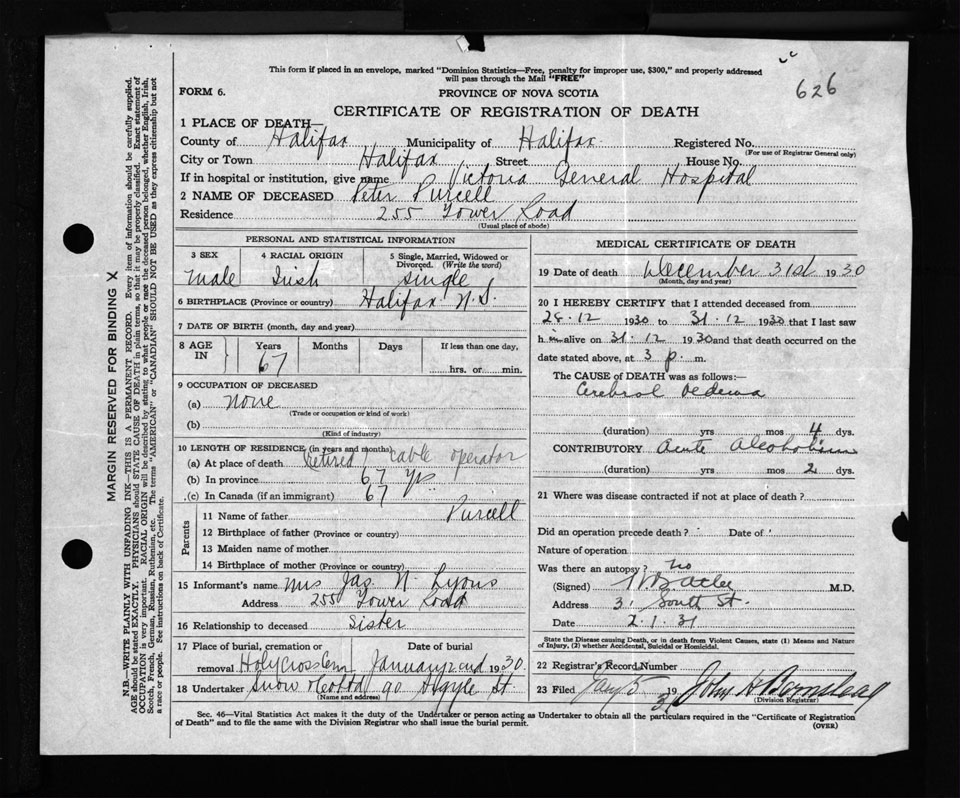 This form if placed in an envelope, marked "Dominion Statistics—Free, penalty for improper use, $300," and properly addressed
will pass through the Mail "FREE"
626
FORM 6.
PROVINCE OF NOVA SCOTIA
CERTIFICATE OF REGISTRATION OF DEATH
1 PLACE OF DEATH—
County of Halifax Municipality of Halifax Registered No.
(For use of Registrar General only)
City or Town Halifax Street House No.
If in hospital or institution, give name Victoria General Hospital
2 NAME OF DECEASED Peter Purcell
Residence 255 Tower Road
(Usual place of abode)
PERSONAL AND STATISTICAL INFORMATION
3 SEX 4 RACIAL ORIGIN 5 Single, Married, Widowed or Divorced. (Write the word)
Male Irish single
6 BIRTHPLACE (Province or country) Halifax N.S.
7 DATE OF BIRTH (month, day and year)
8 AGE IN Years Months Days If less than one day,
67 hrs. or min.
9 OCCUPATION OF DECEASED
(a) none
(Trade or occupation or kind of work)
(b)
(Kind of industry)
10 LENGTH OF RESIDENCE (in years and months)
(a) At place of death retired cable operator
(b) In province 67 yrs
(c) In Canada (if an immigrant) 67
Parents
11 Name of father Purcell
12 Birthplace of father (Province or country)
13 Maiden name of mother
14 Birthplace of mother (Province or country)
15 Informant's name Mrs Jas. N. Lyons
Address 255 Tower Road
16 Relationship to deceased Sister
17 Place of burial, cremation or Date of burial
removal Holy Cross Cem January 2nd 1930.
18 Undertaker Snow & Co Ltd 90 Argyle St.
(Name and address)
MEDICAL CERTIFICATE OF DEATH
19 Date of death December 31st 1930
(Month, day and year)
20 I HEREBY CERTIFY that I attended deceased from
28.12 1930 to 31.12 1930 that I last saw
him alive on 31.12 1930 and that death occurred on the
date stated above, at 3 p. m.
The CAUSE OF DEATH was as follows:—
Cerebral Oedema
(duration) yrs mos 4 dys.
CONTRIBUTORY Acute Alcoholism
(duration) yrs mos 2 dys.
21 Where was disease contracted if not at place of death?
Did an operation precede death? Date of
Nature of operation
Was there an autopsy? no
(Signed) M.D.
Address 31 South St.
Date 2.1.31
State the Disease causing Death, or in death from Violent Causes, state (1) Means and Nature
of Injury, (2) whether Accidental, Suicidal or Homicidal.
22 Registrar's Record Number
23 Filed Jany 5 1931 John H
(Division Registrar)
Sec. 46—Vital Statistics Act makes it the duty of the Undertaker or person acting as Undertaker to obtain all the particulars required in the "Certificate of Registration
of Death" and to file the same with the Division Registrar who shall issue the burial permit.
(OVER)
MARGIN RESERVED FOR BINDING X
N.B.—WRITE PLAINLY WITH UNFADING INK—THIS IS A PERMANENT RECORD. Every item of information should be carefully supplied.
AGE should be stated EXACTLY. PHYSICIANS should STATE CAUSE OF DEATH in plain terms, so that it may be properly classified. Exact statement of
OCCUPATION is very important. RACIAL ORIGIN will be described by stating to what people or race the deceased person belonged, whether English, Irish,
Scotch, French, German, Russian, Ruthenian, etc. The terms "AMERICAN" or "CANADIAN" SHOULD NOT BE USED as they express citizenship but not
a race or people. See instructions on back of Certificate.